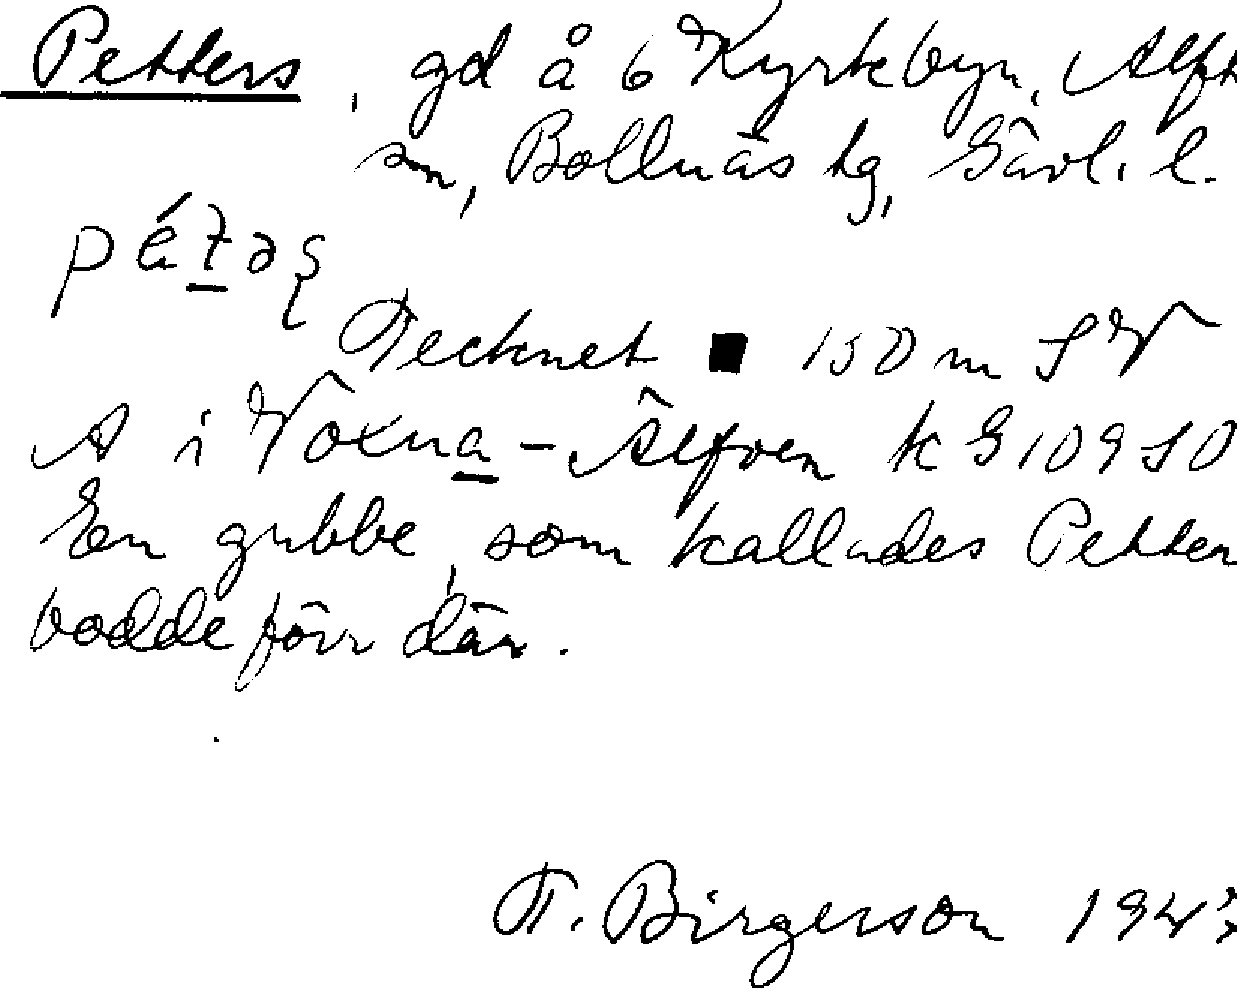 Petters, gd å 6 Kyrkbyn, Alfta
sn, Bollnäs tg, Gävl. l.
pétəʂ
Tecknet ■ 150 m SV
A i Voxna-Älfven k G 109 SO
En gubbe, som kallades Petter
bodde förr där.
T. Birgerson 1943